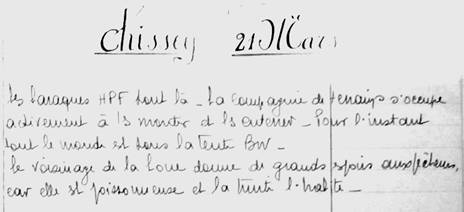 Chissey 21 Mars
Les baraques HPF sont là _ La Compagnie de terrains s'occupe
activement à les monter et les entener _ Pour l'instant
tout le monde est sous la tente BW _
Le voisinage de la Loue donne de grands espoirs aux pêcheurs,
car elle est poissonneuse et la truite l'habite _